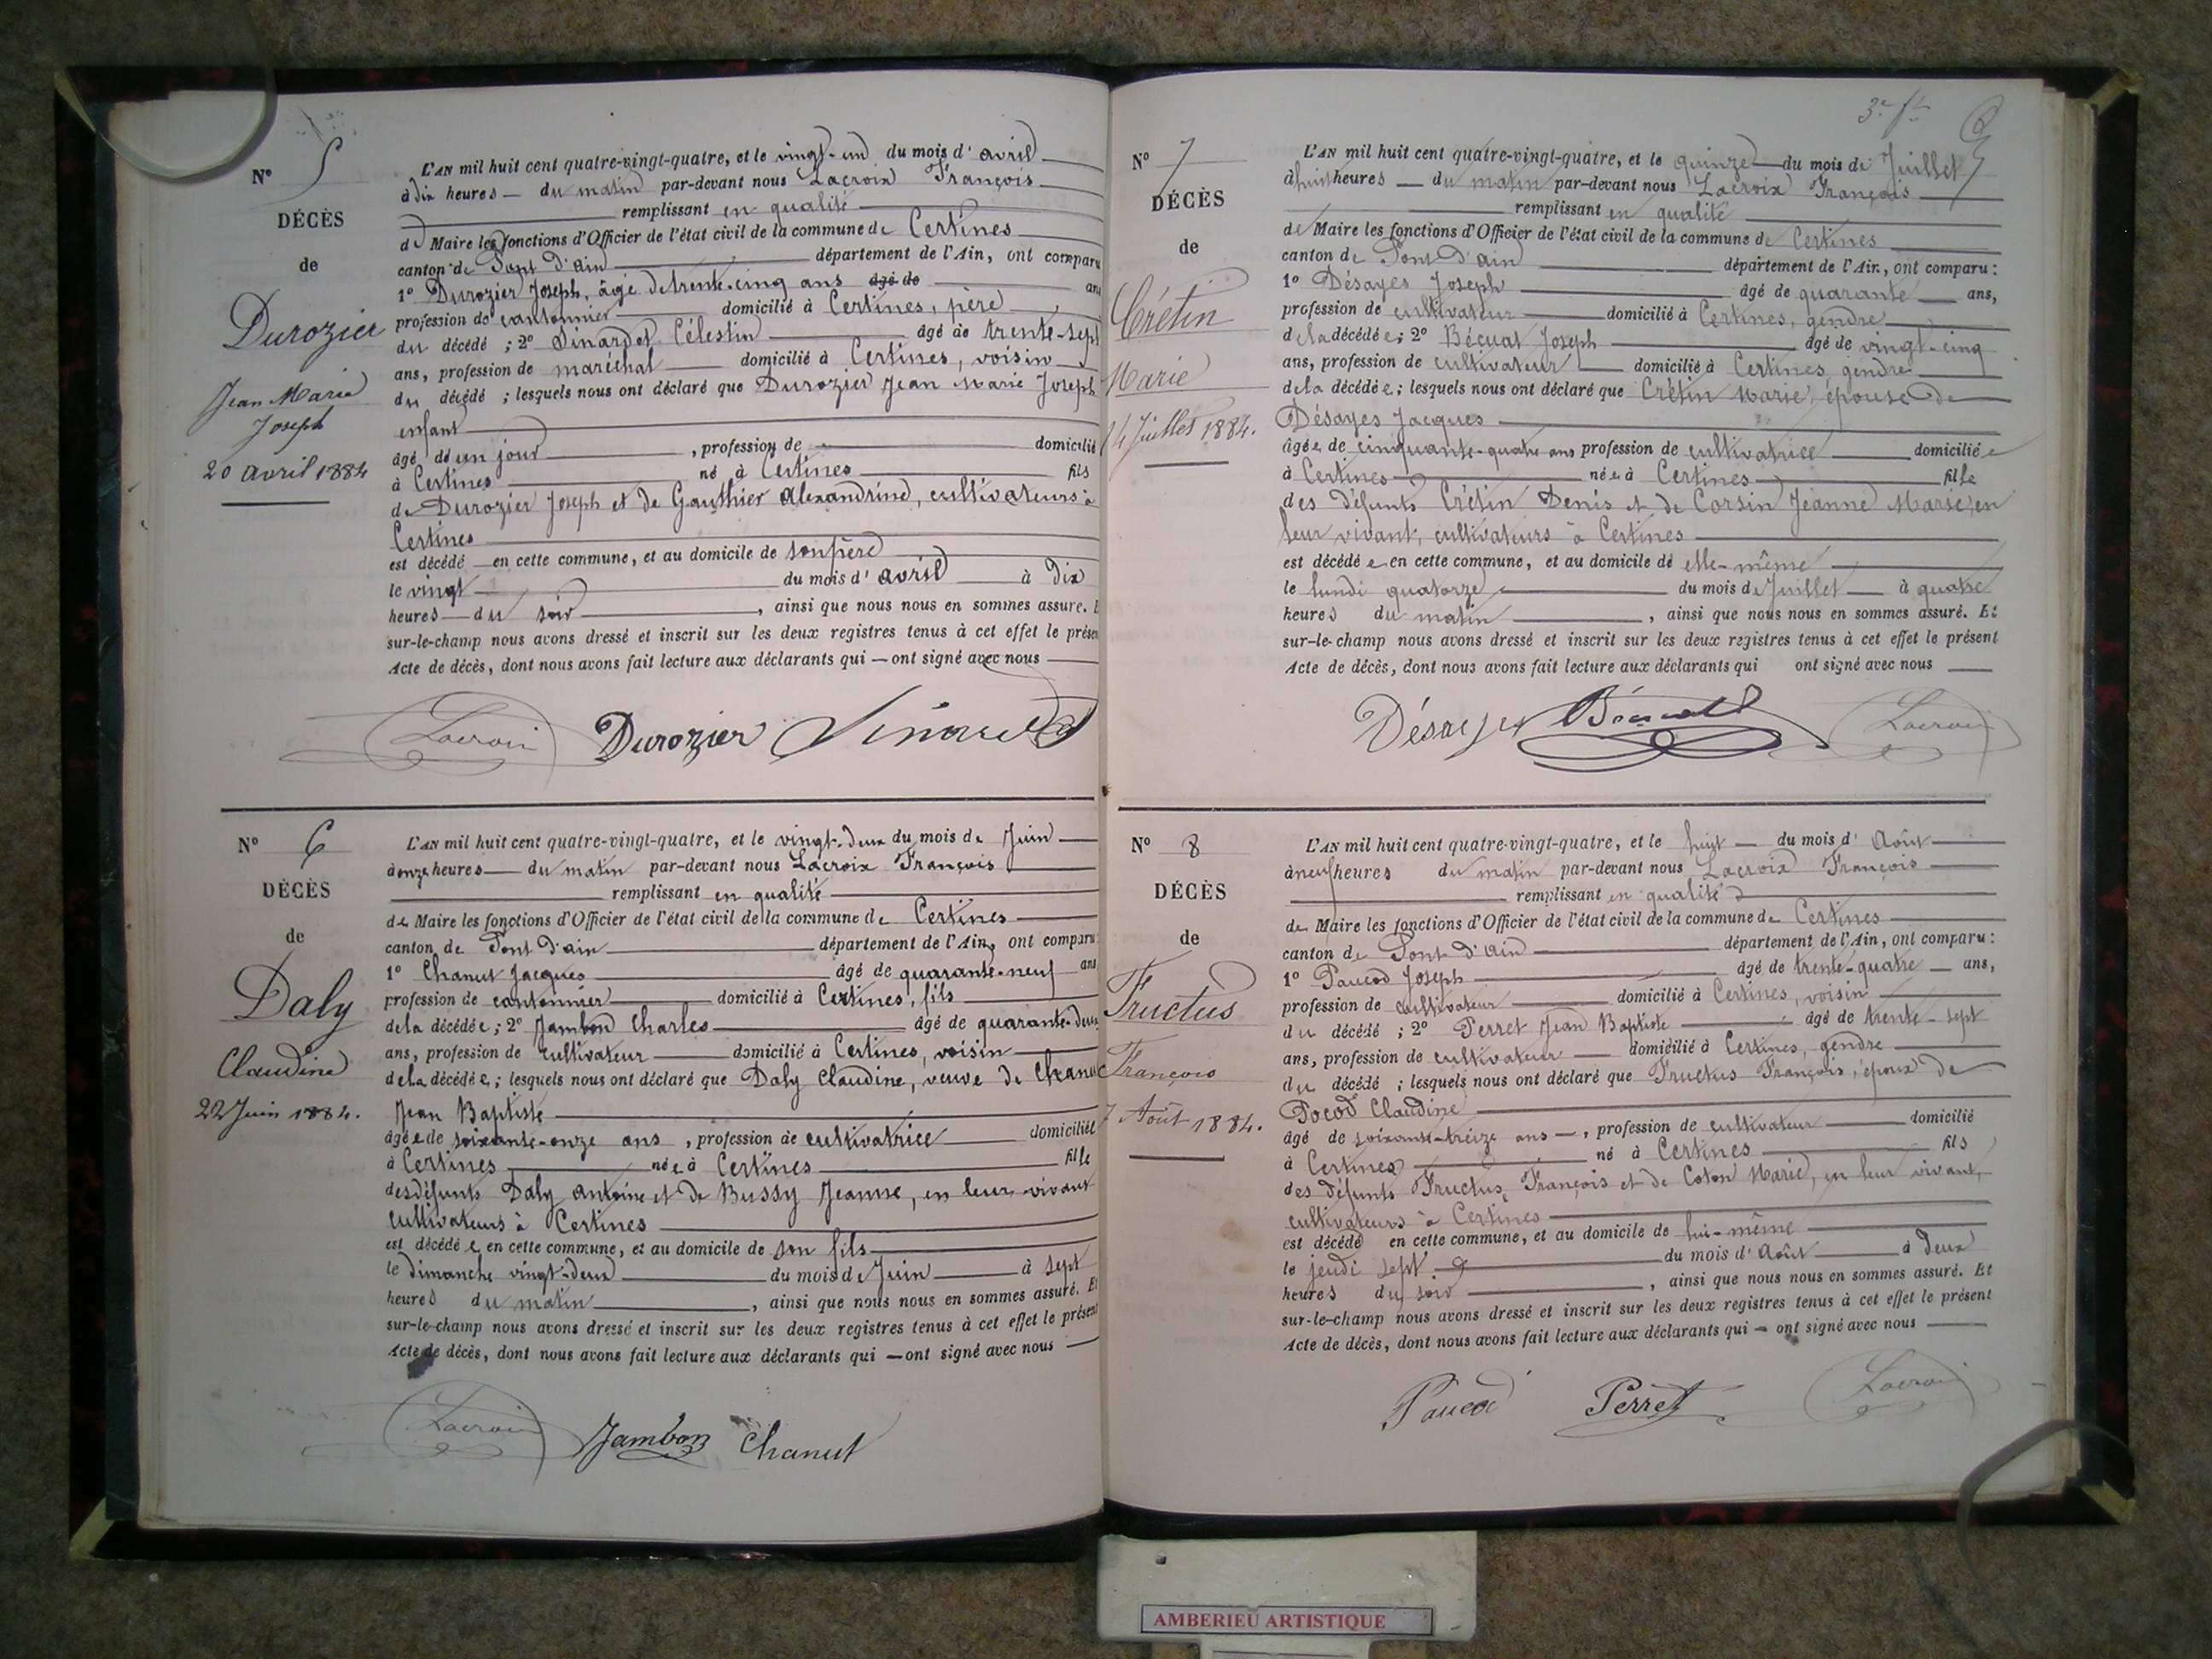 N° 5
DÉCÈS
de
Durozier
Jean Marie
Joseph
20 avril 1884
L'AN mil huit cent quatre-vingt-quatre, et le vingt-un du mois d' avril
à dix heures du matin par-devant nous Lacroix François
remplissant en qualité
de Maire les fonctions d'Officier de l'état civil de la commune de Certines
canton de Pont d'ain département de l'Ain, ont comparu
1° Durozier Joseph, âgé de trente-cinq ans âgé de ans
profession de cantonnier domicilié à Certines, père
du décédé ; 2° Sinardet Célestin âgé de trente-sept
ans, profession de maréchal domicilié à Certines, voisin
du décédé ; lesquels nous ont déclaré que Durozier Jean Marie Joseph
enfant
âgé de un jour , profession de domicilié
à Certines né à Certines fils
de Durozier Joseph et de Gauthier Alexandrine, cultivateurs à
Certines
est décédé en cette commune, et au domicile de son père
le vingt du mois d' avril à dix
heures du soir , ainsi que nous nous en sommes assuré. E
sur-le-champ nous avons dressé et inscrit sur les deux registres tenus à cet effet le présen
Acte de décès, dont nous avons fait lecture aux déclarants qui ont signé avec nous
Lacroix Durozier Sinardet
N° 6
DÉCÈS
de
Daly
Claudine
22 Juin 1884.
L'AN mil huit cent quatre-vingt-quatre, et le vingt-deux du mois de Juin
à onze heures du matin par-devant nous Lacroix François
remplissant en qualité
de Maire les fonctions d'Officier de l'état civil de la commune de Certines
canton de Pont d'ain département de l'Ain, ont comparu
1° Chanut Jacques âgé de quarante-neuf ans
profession de cantonnier domicilié à Certines, fils
de la décédée ; 2° Jambon Charles âgé de quarante-deux
ans, profession de cultivateur domicilié à Certines, voisin
de la décédée ; lesquels nous ont déclaré que Daly Claudine, veuve de Chanut
Jean Baptiste
âgée de soixante-onze ans , profession de cultivatrice domiciliée
à Certines née à Certines fille
des défunts Daly Antoine et de Bussy Jeanne, en leur vivant
cultivateurs à Certines
est décédée en cette commune, et au domicile de son fils
le dimanche vingt-deux du mois de Juin à sept
heures du matin , ainsi que nous nous en sommes assuré. Et
sur-le-champ nous avons dressé et inscrit sur les deux registres tenus à cet effet le présent
Acte de décès, dont nous avons fait lecture aux déclarants qui ont signé avec nous
Lacroix Jambon Chanut
3e ft
N° 7
DÉCÈS
de
Crétin
Marie
14 Juillet 1884.
L'AN mil huit cent quatre-vingt-quatre, et le quinze du mois de Juillet
à huit heures du matin par-devant nous Lacroix François
remplissant en qualité
de Maire les fonctions d'Officier de l'état civil de la commune de Certines
canton de Pont d'ain département de l'Ain, ont comparu :
1° Désayes Joseph âgé de quarante ans,
profession de cultivateur domicilié à Certines, gendre
de la décédée ; 2° Bécuat Joseph âgé de vingt-cinq
ans, profession de cultivateur domicilié à Certines gendre
de la décédée ; lesquels nous ont déclaré que Crétin Marie, épouse de
Désayes Jacques
âgée de cinquante-quatre ans profession de cultivatrice domiciliée
à Certines née à Certines fille
des défunts Crétin Denis et de Corsin Jeanne Marie, en
leur vivant, cultivateurs à Certines
est décédée en cette commune, et au domicile de elle-même
le lundi quatorze du mois de Juillet à quatre
heures du matin , ainsi que nous nous en sommes assuré. Et
sur-le-champ nous avons dressé et inscrit sur les deux registres tenus à cet effet le présent
Acte de décès, dont nous avons fait lecture aux déclarants qui ont signé avec nous
Désayes Bécuat Lacroix
N° 8
DÉCÈS
de
Fructus
François
7 Août 1884.
L'AN mil huit cent quatre-vingt-quatre, et le huit du mois d' Août
à neuf heures du matin par-devant nous Lacroix François
remplissant en qualité
de Maire les fonctions d'Officier de l'état civil de la commune de Certines
canton de Pont d'ain département de l'Ain, ont comparu :
1° Paucod Joseph âgé de trente-quatre ans,
profession de cultivateur domicilié à Certines, voisin
du décédé ; 2° Perret Jean Baptiste âgé de trente-sept
ans, profession de cultivateur domicilié à Certines, gendre
du décédé ; lesquels nous ont déclaré que Fructus François, époux de
Pocod Claudine
âgé de soixante-treize ans , profession de cultivateur domicilié
à Certines né à Certines fils
des défunts Fructus François et de Coton Marie, en leur vivant,
cultivateurs à Certines
est décédé en cette commune, et au domicile de lui-même
le jeudi sept du mois d' Août à deux
heures du soir , ainsi que nous nous en sommes assuré. Et
sur-le-champ nous avons dressé et inscrit sur les deux registres tenus à cet effet le présent
Acte de décès, dont nous avons fait lecture aux déclarants qui ont signé avec nous
Paucod Perret Lacroix
AMBERIEU ARTISTIQUE